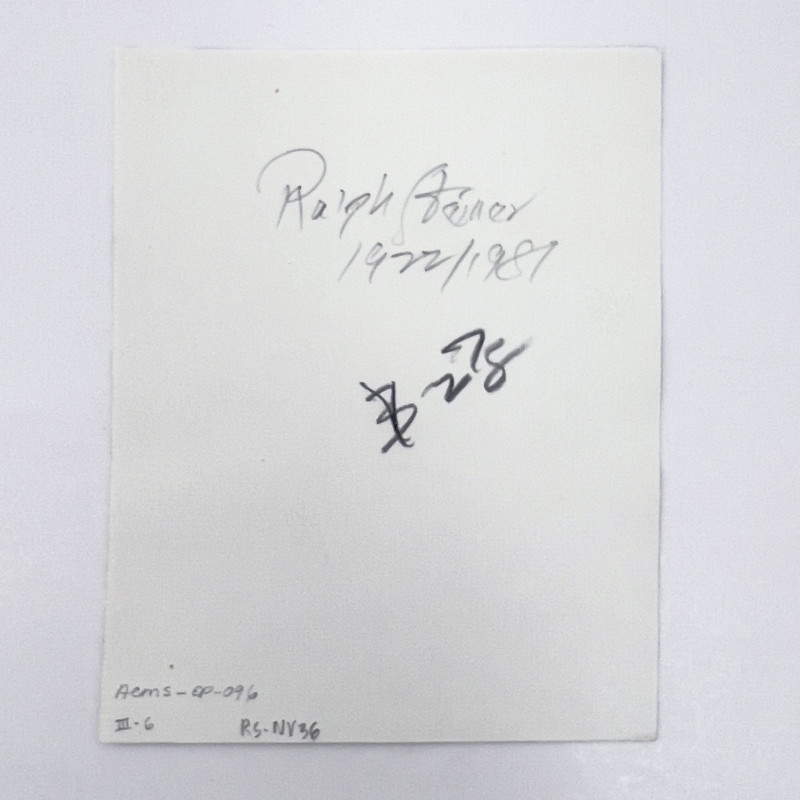 Ralph Steiner
1922/1981
278
Aems-EP-096
III-6 RS-NY36